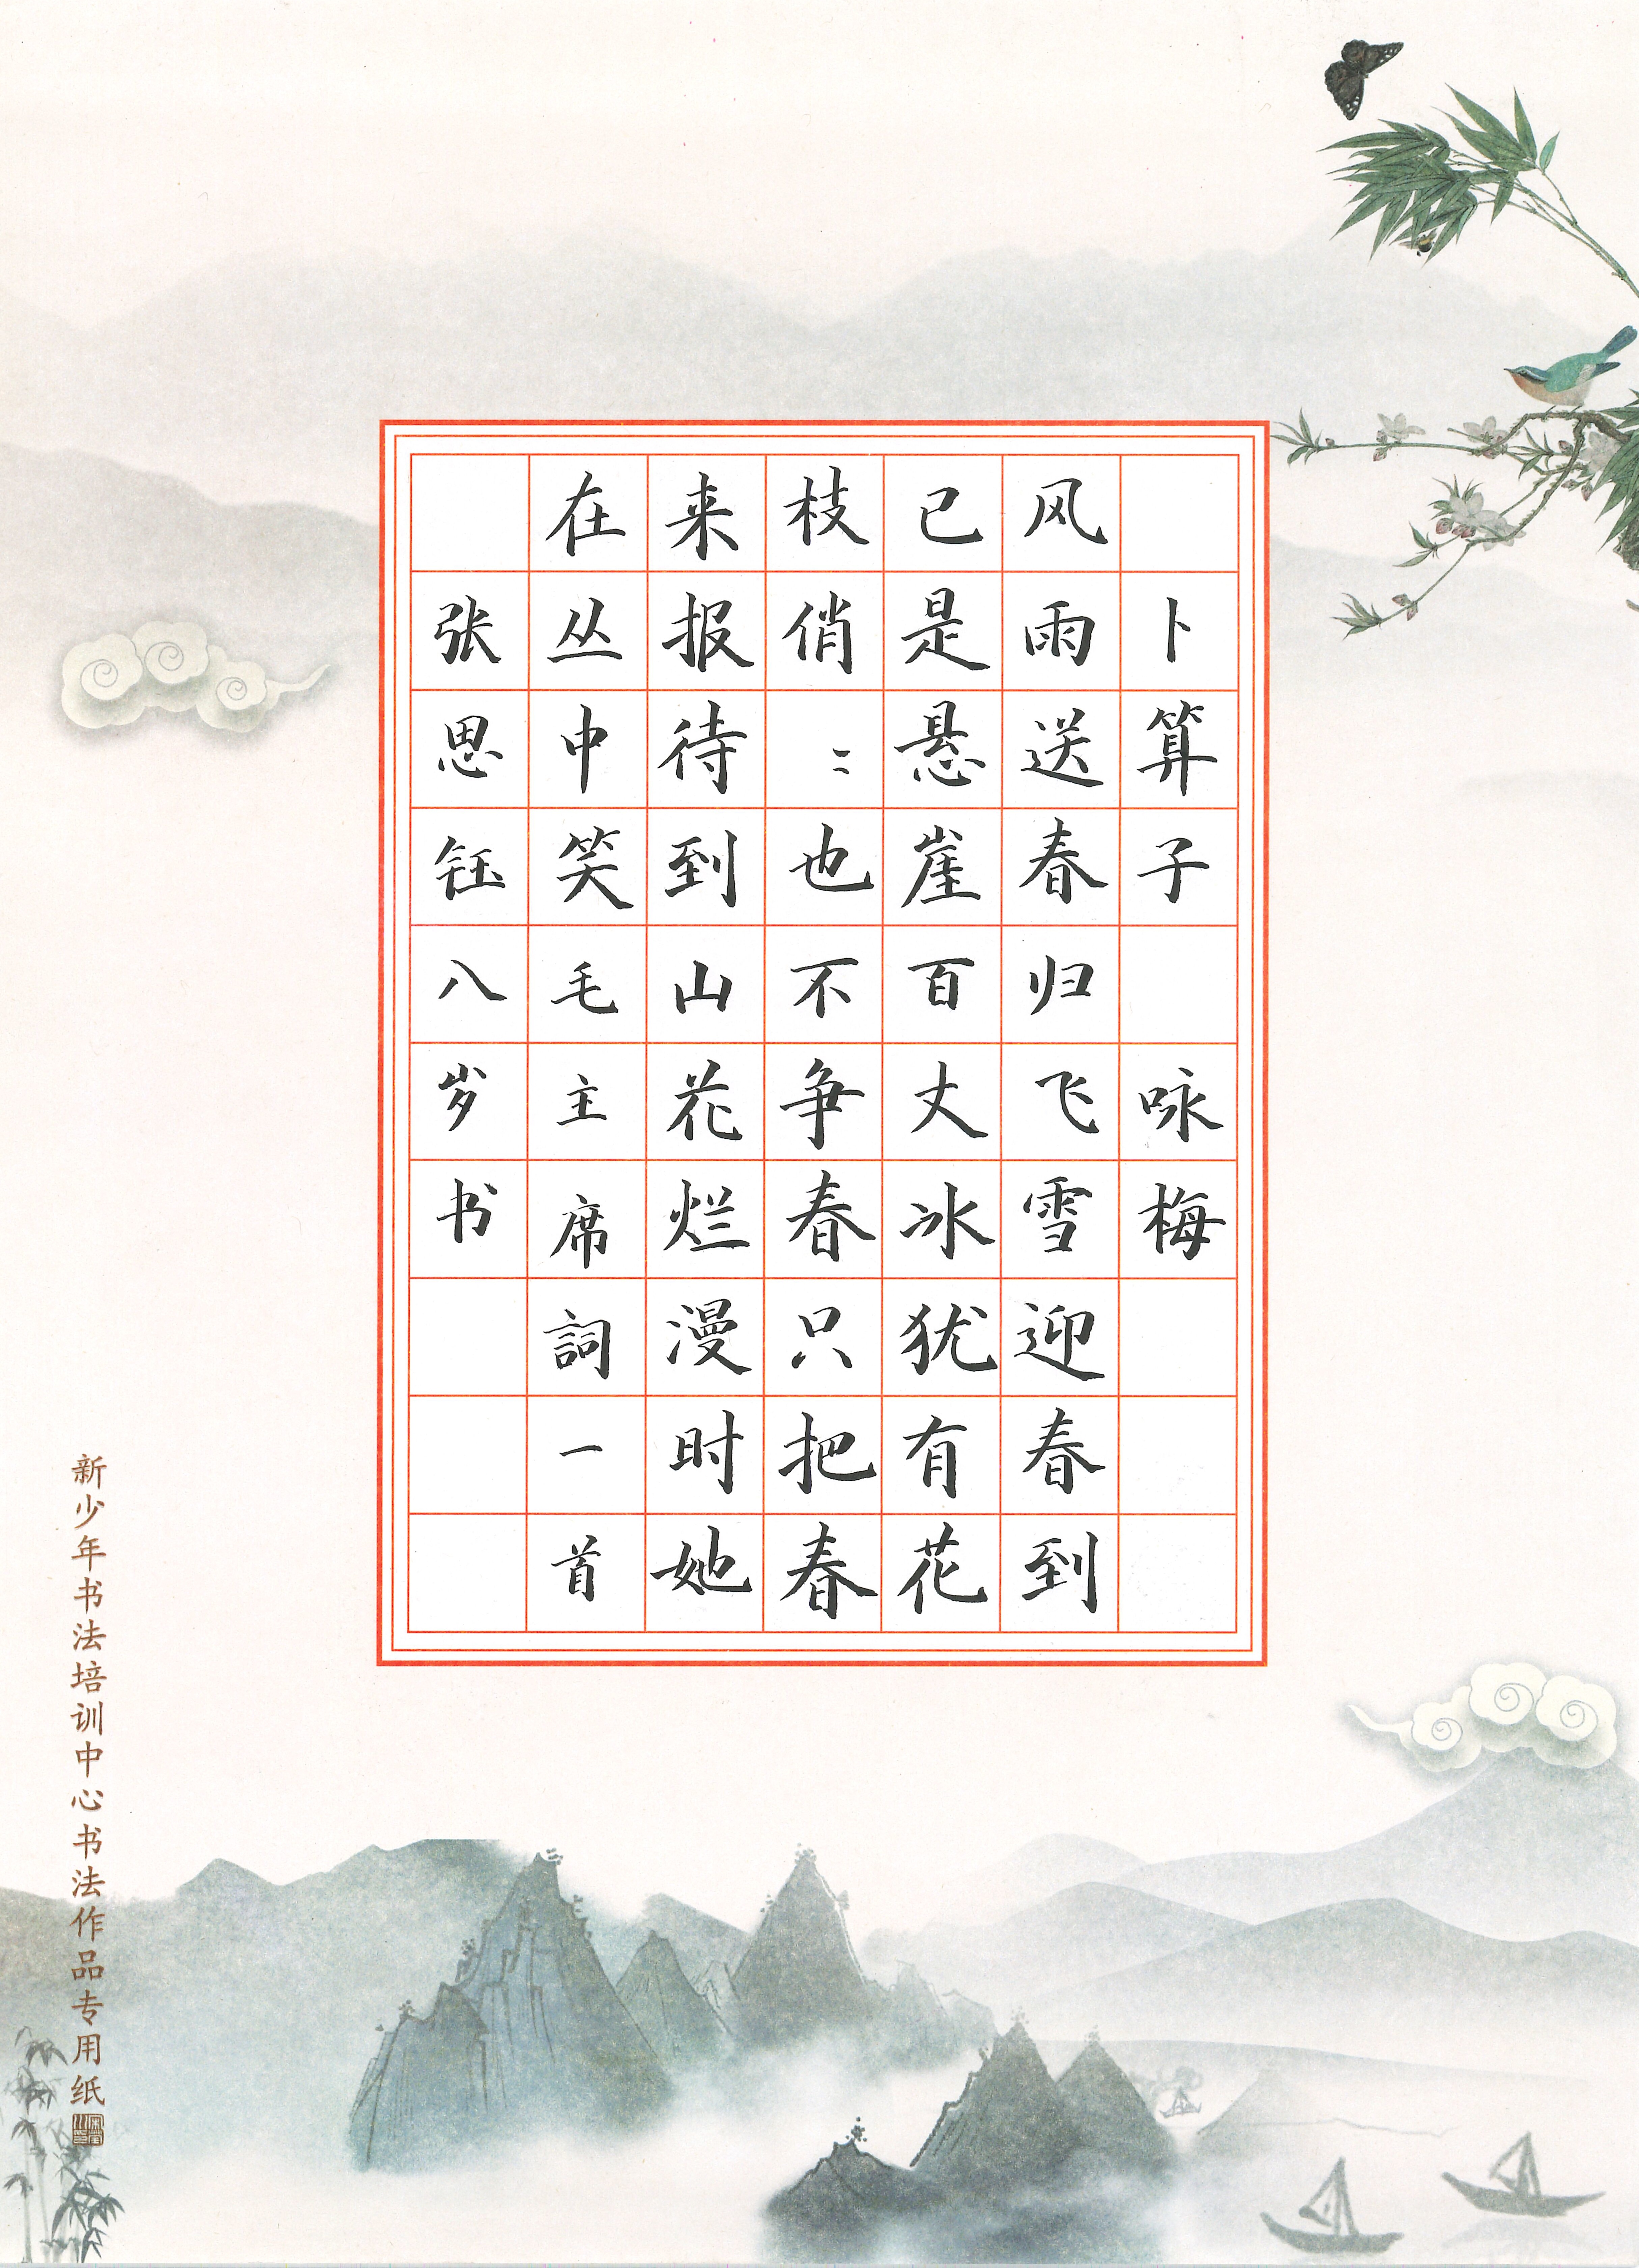 卜算子 咏梅
风雨送春归飞雪迎春到
已是悬崖百丈冰犹有花
枝俏：也不争春只把春
来报待到山花烂漫时她
在丛中笑毛主席詞一首
张思钰八岁书
新少年书法培训中心书法作品专用纸